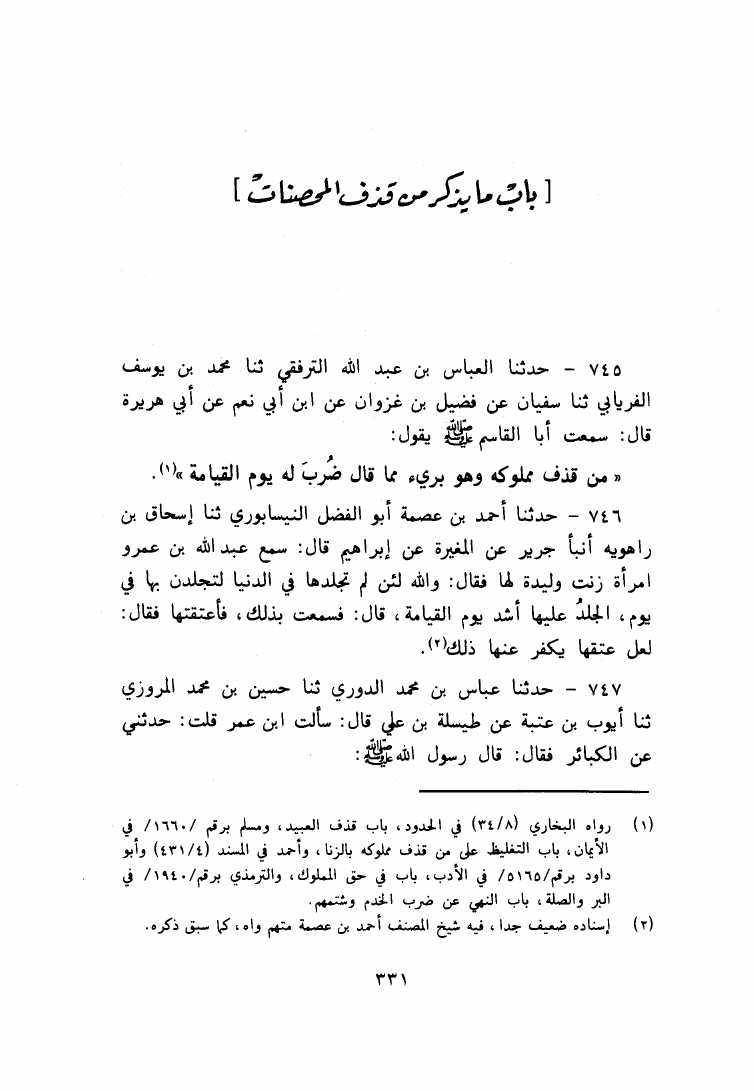 [ باب ما يذكر من قذف المحصنات ]
٧٤٥ - حدثنا العباس بن عبد الله الترفقي ثنا محمد بن يوسف
الفريابي ثنا سفيان عن فضيل بن غزوان عن ابن أبي نعم عن أبي هريرة
قال: سمعت أبا القاسم ﷺ يقول:
« من قذف مملوكه وهو بريء مما قال ضُربَ له يوم القيامة »(١).
٧٤٦ - حدثنا أحمد بن عصمة أبو الفضل النيسابوري ثنا إسحاق بن
راهويه أنبأ جرير عن المغيرة عن إبراهيم قال: سمع عبد الله بن عمرو
امرأة زنت وليدة لها فقال: والله لئن لم تجلدها في الدنيا لتجلدن بها في
يوم، الجلدُ عليها أشد يوم القيامة، قال: فسمعت بذلك، فأعتقتها فقال:
لعل عتقها يكفر عنها ذلك(٢).
٧٤٧ - حدثنا عباس بن محمد الدوري ثنا حسين بن محمد المروزي
ثنا أيوب بن عتبة عن طيسلة بن علي قال: سألت ابن عمر قلت: حدثني
عن الكبائر فقال: قال رسول الله ﷺ:
(١) رواه البخاري (٣٤/٨) في الحدود، باب قذف العبيد، ومسلم برقم /١٦٦٠/ في
الأيمان، باب التغليظ على من قذف مملوكه بالزنا، وأحمد في المسند (٤٣١/٤) وأبو
داود برقم/٥١٦٥/ في الأدب، باب في حق المملوك، والترمذي برقم/١٩٤٠/ في
البر والصلة، باب النهي عن ضرب الخدم وشتمهم.
(٢) إسناده ضعيف جدا، فيه شيخ المصنف أحمد بن عصمة متهم واه، كما سبق ذكره.
٣٣١